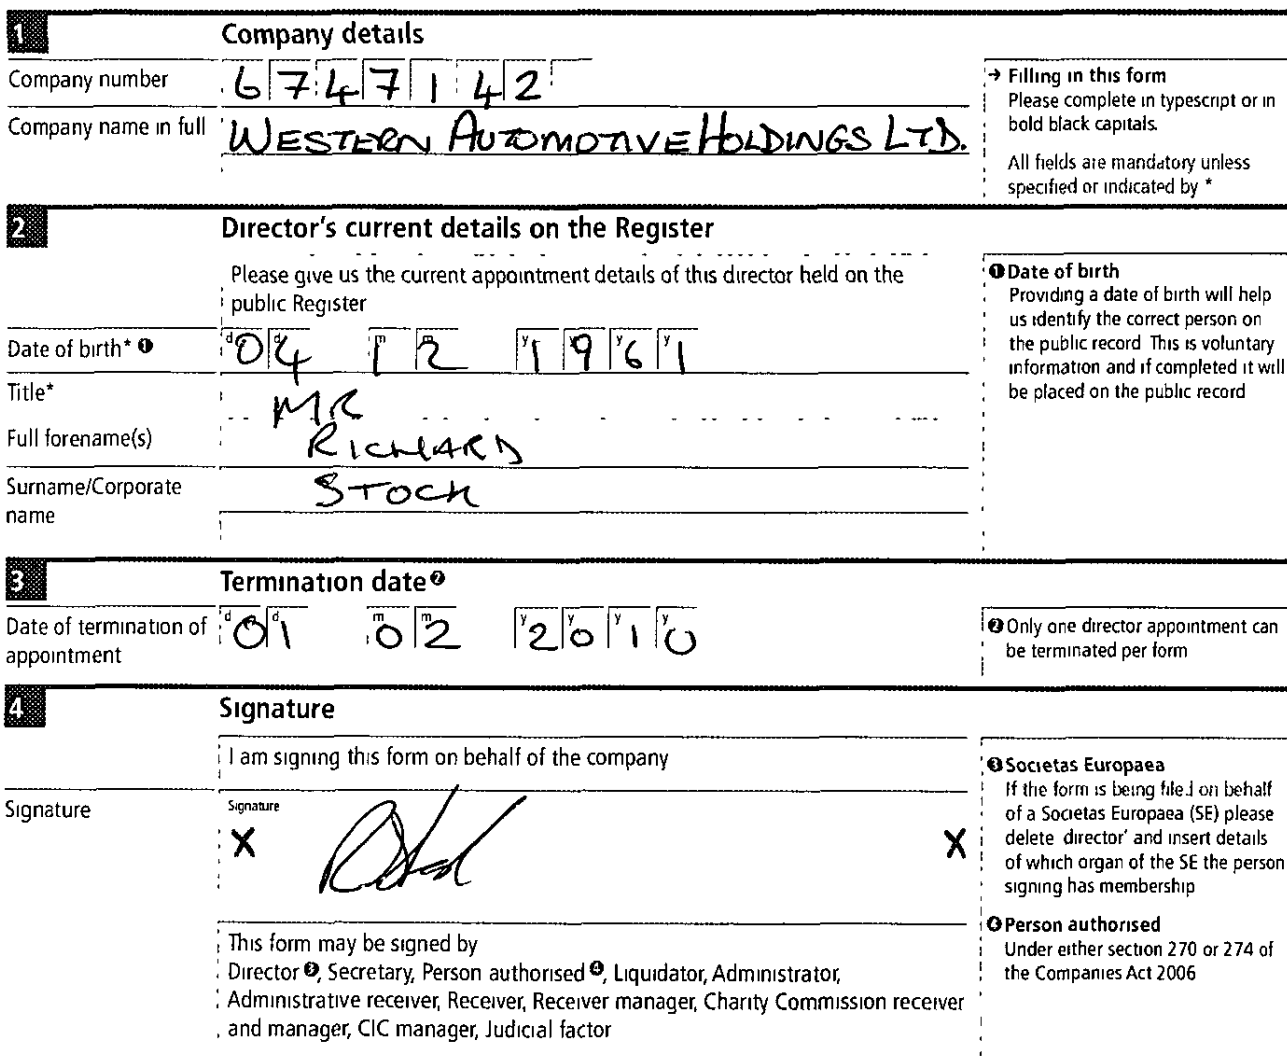 1 Company details
Company number 6747142
Company name in full WESTERN AUTOMOTIVE HOLDINGS LTD.
→ Filling in this form
Please complete in typescript or in
bold black capitals.
All fields are mandatory unless
specified or indicated by *
2 Director's current details on the Register
Please give us the current appointment details of this director held on the
public Register
Date of birth* ❶ d0 d4 m1 m2 y1 y9 y6 y1
Title* MR
Full forename(s) RICHARD
Surname/Corporate STOCK
name
❶ Date of birth
Providing a date of birth will help
us identify the correct person on
the public record This is voluntary
information and if completed it will
be placed on the public record
3 Termination date ❷
Date of termination of d0 d1 m0 m2 y2 y0 y1 y0
appointment
❷ Only one director appointment can
be terminated per form
4 Signature
I am signing this form on behalf of the company
Signature
Signature
X X
This form may be signed by
Director ❸, Secretary, Person authorised ❹, Liquidator, Administrator,
Administrative receiver, Receiver, Receiver manager, Charity Commission receiver
and manager, CIC manager, Judicial factor
❸ Societas Europaea
If the form is being filed on behalf
of a Societas Europaea (SE) please
delete director' and insert details
of which organ of the SE the person
signing has membership
❹ Person authorised
Under either section 270 or 274 of
the Companies Act 2006